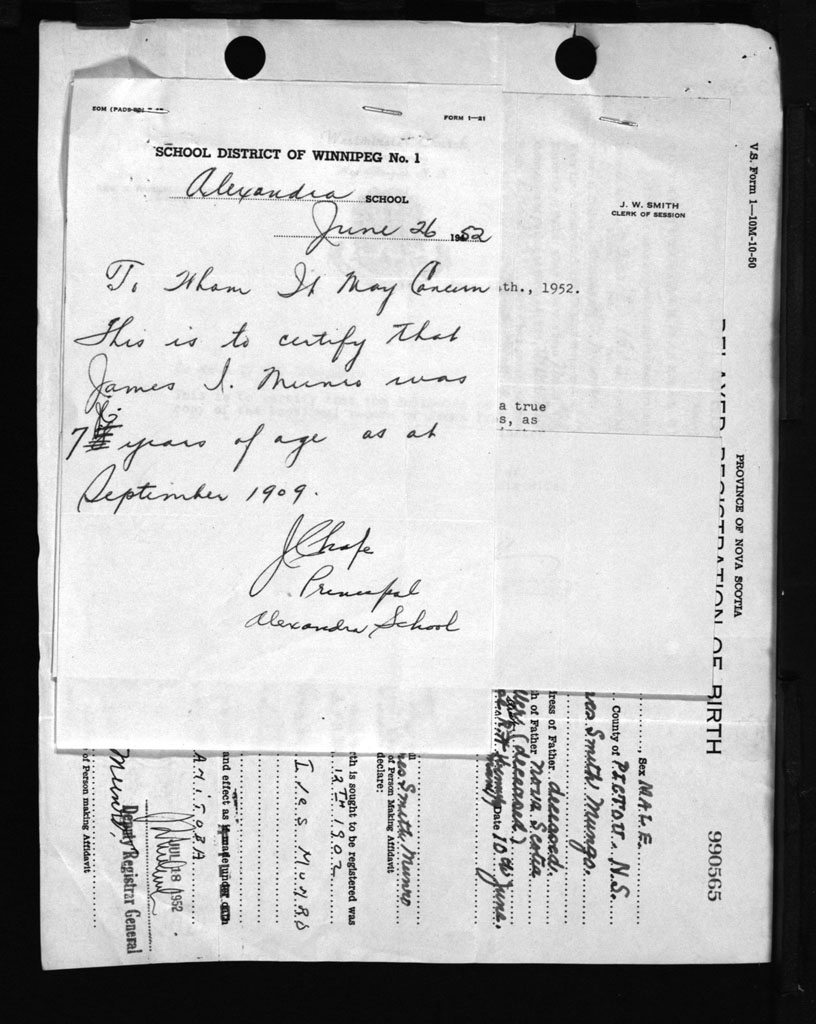 FORM 1—21
SCHOOL DISTRICT OF WINNIPEG No. 1
Alexandra SCHOOL
June 26 1952
To Whom It May Concern
This is to certify that
James S. Munro was
7 years of age as at
September 1909.
Principal
Alexandra School
J. W. SMITH
CLERK OF SESSION
th., 1952.
a true
s, as
V.S. Form 1—10M-10-50
PROVINCE OF NOVA SCOTIA
DELAYED REGISTRATION OF BIRTH
990565
Sex MALE.
County of PICTOU. N.S.
Smith Mungo.
ress of Father deceased.
h of Father Nova Scotia
(deceased.)
Date 10th June.
Smith Munro
of Person Making Affidavit
declare:
rth is sought to be registered was
12TH 1902
MUNRO
and effect as
ANITOBA
JUL 18 1952
Deputy Registrar General
Munro
of Person making Affidavit